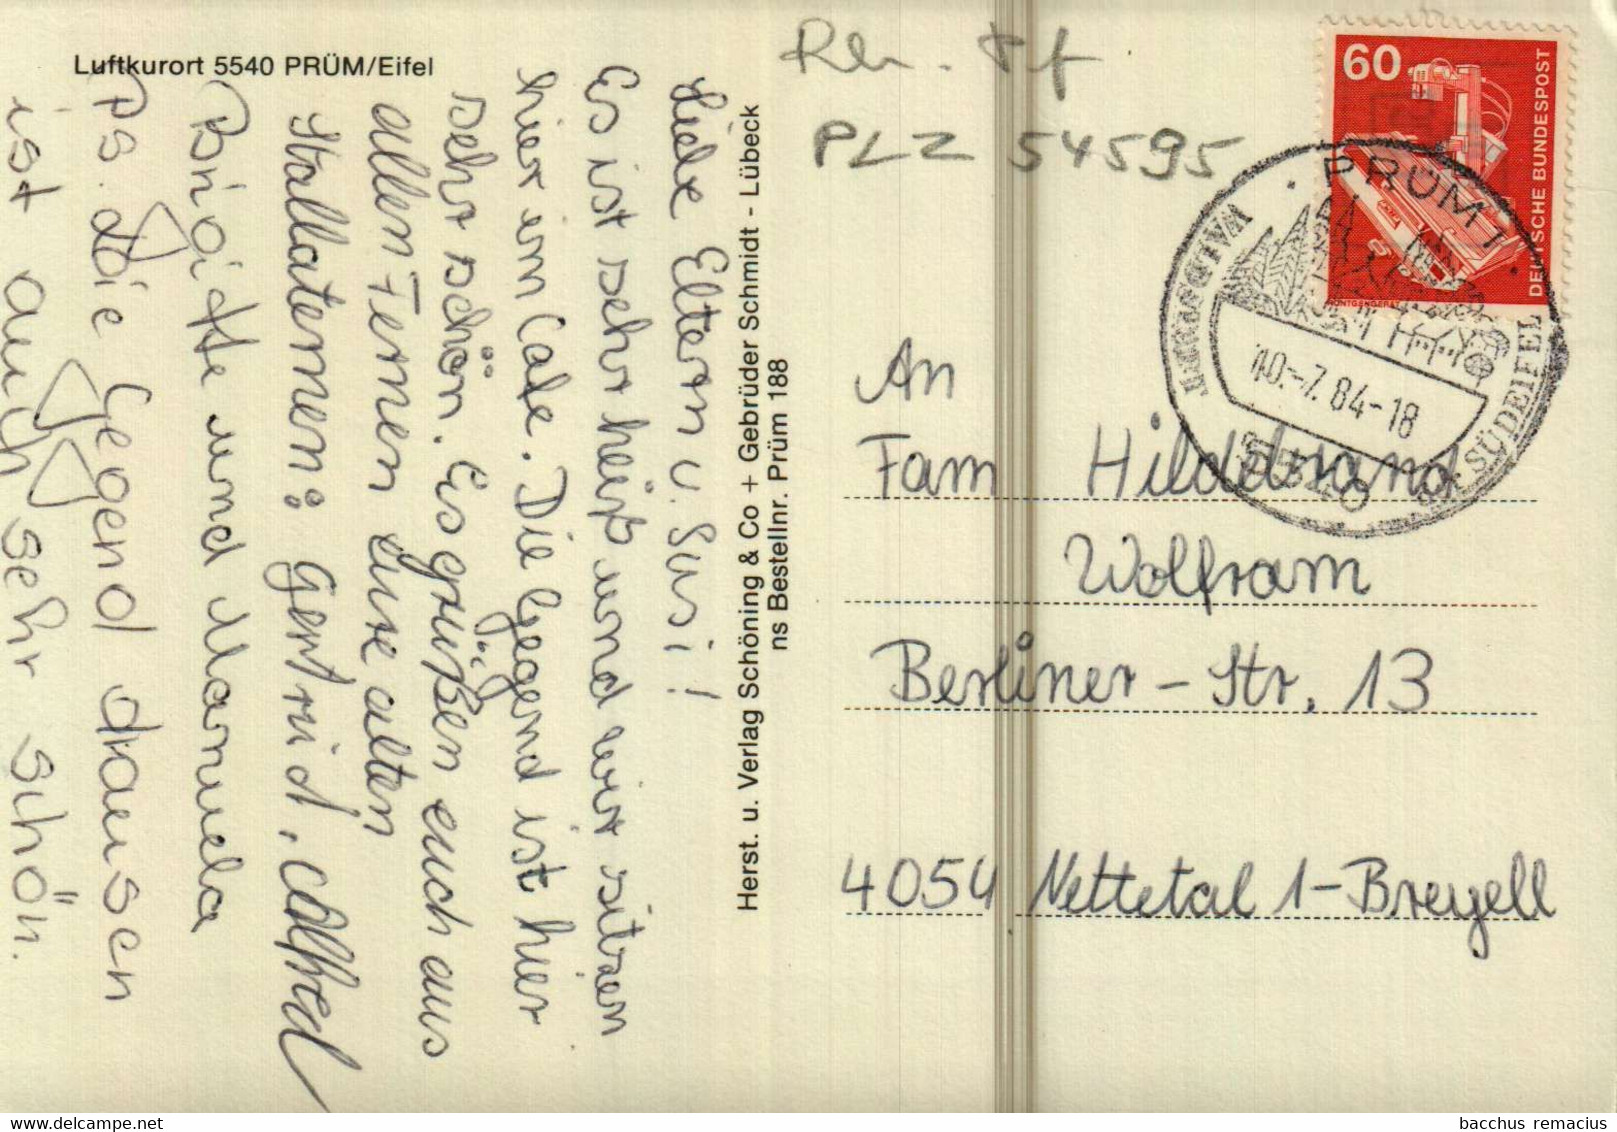 Luftkurort 5540 PRÜM/Eifel
Liebe Eltern u. Susi!
Es ist sehr heiß und wir sitzen
hier im Cafe. Die Gegend ist hier
sehr schön. Es grüßen euch aus
allen Fernen eure alten
Stallaternen: Gertrud,
Brigitte und Manuela
Ps. Die Gegend drausen
ist auch sehr schön.
Herst. u. Verlag Schöning & Co + Gebrüder Schmidt - Lübeck
ns Bestellnr. Prüm 188
PLZ 54595
60
DEUTSCHE BUNDESPOST
RÖNTGENGERÄT
PRÜM 1
WALDREICH
10.-7.84-18
SÜDEIFEL
An
Fam Hildebrand
Wolfram
Berliner-Str. 13
4054 Nettetal 1-Breyell
bacchus remacius